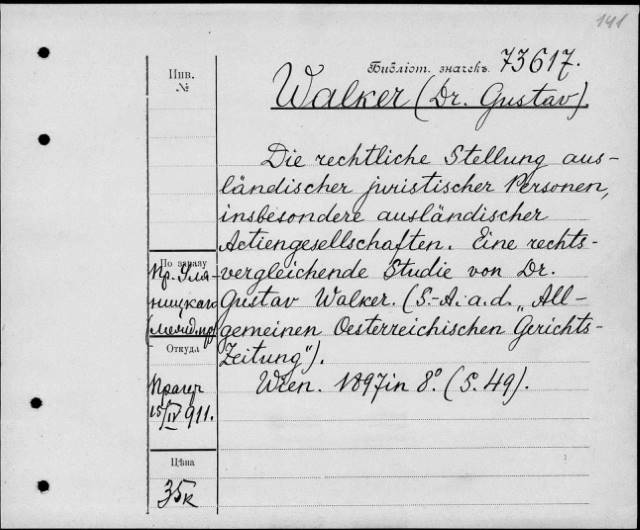 141
Библіот. значекъ 73617.
Инв. №
Walker (Dr. Gustav).
Die rechtliche Stellung aus-
ländischer juristischer Personen,
insbesondere ausländischer
Actiengesellschaften. Eine rechts-
vergleichende Studie von Dr.
Gustav Walker. (S.-A. a. d. „All-
gemeinen Oesterreichischen Gerichts-
Zeitung").
Wien. 1897 in 8º. (S. 49).
По заказу
Пр. Уля-
ницкаго
Откуда
Прагер
15/IV 911.
Цѣна
35к